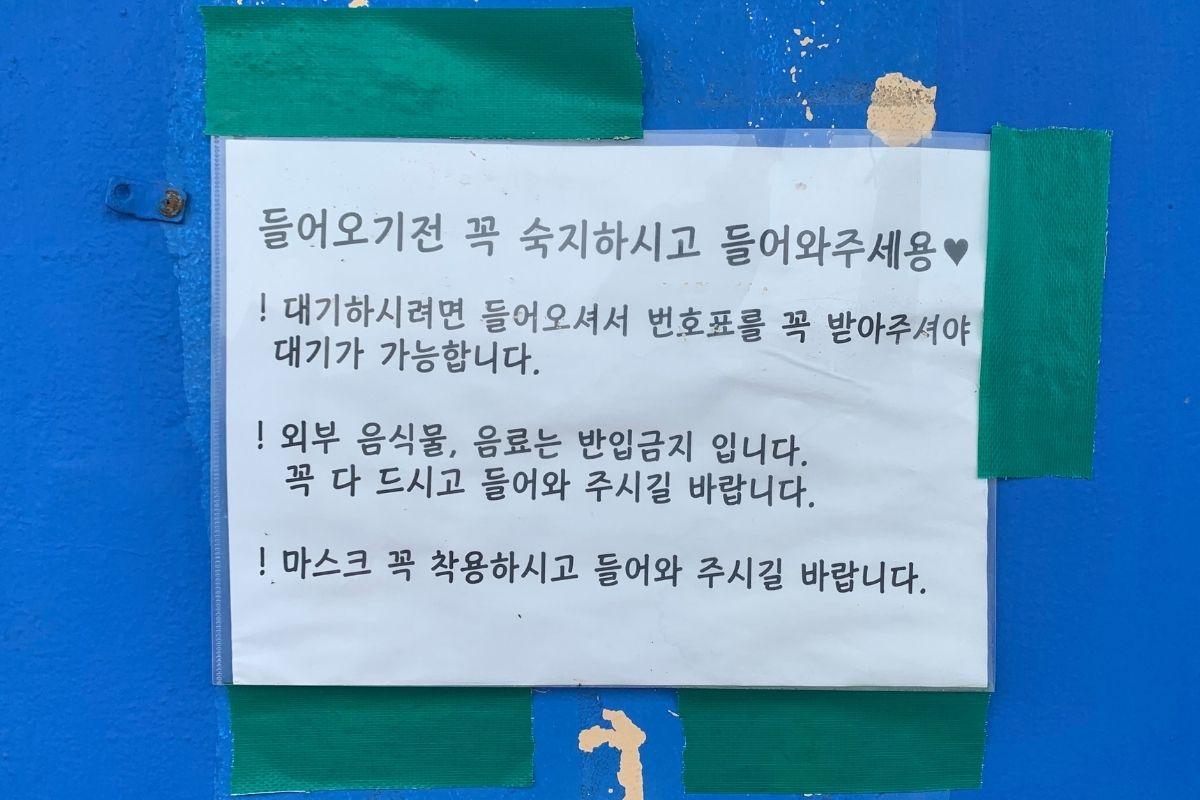 들어오기전 꼭 숙지하시고 들어와주세용♥
! 대기하시려면 들어오셔서 번호표를 꼭 받아주셔야
대기가 가능합니다.
! 외부 음식물, 음료는 반입금지 입니다.
꼭 다 드시고 들어와 주시길 바랍니다.
! 마스크 꼭 착용하시고 들어와 주시길 바랍니다.